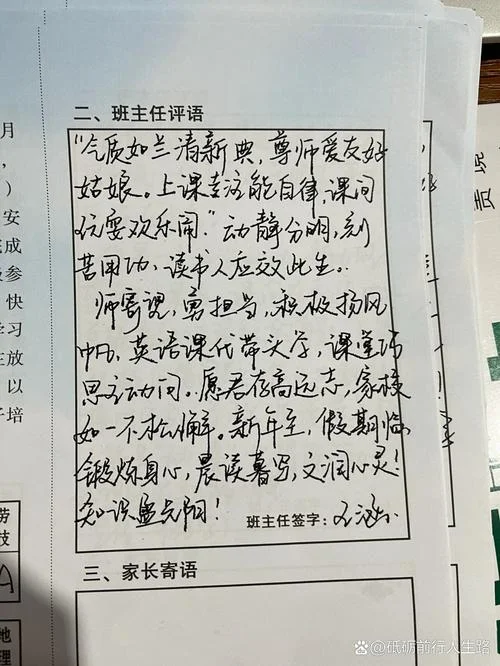 二、班主任评语
"气质如兰清新典,尊师爱友好
姑娘。上课专注能自律,课间
玩耍欢乐闹."动静分明,刻
苦用功,读书人应效此生。
师寄望,勇担当,积极扬风
帆,英语课代带头学,课堂巧
思主动问。愿君存高远志,家校
如一不松懈。新年至,假期临
锻炼身心,晨读暮写,文润心灵!
知识盈
班主任签字:
三、家长寄语
月
,
)
安
成
级参
快
学习
在放
以
子培
劳
技
A
地
理
@砥砺前行人生路